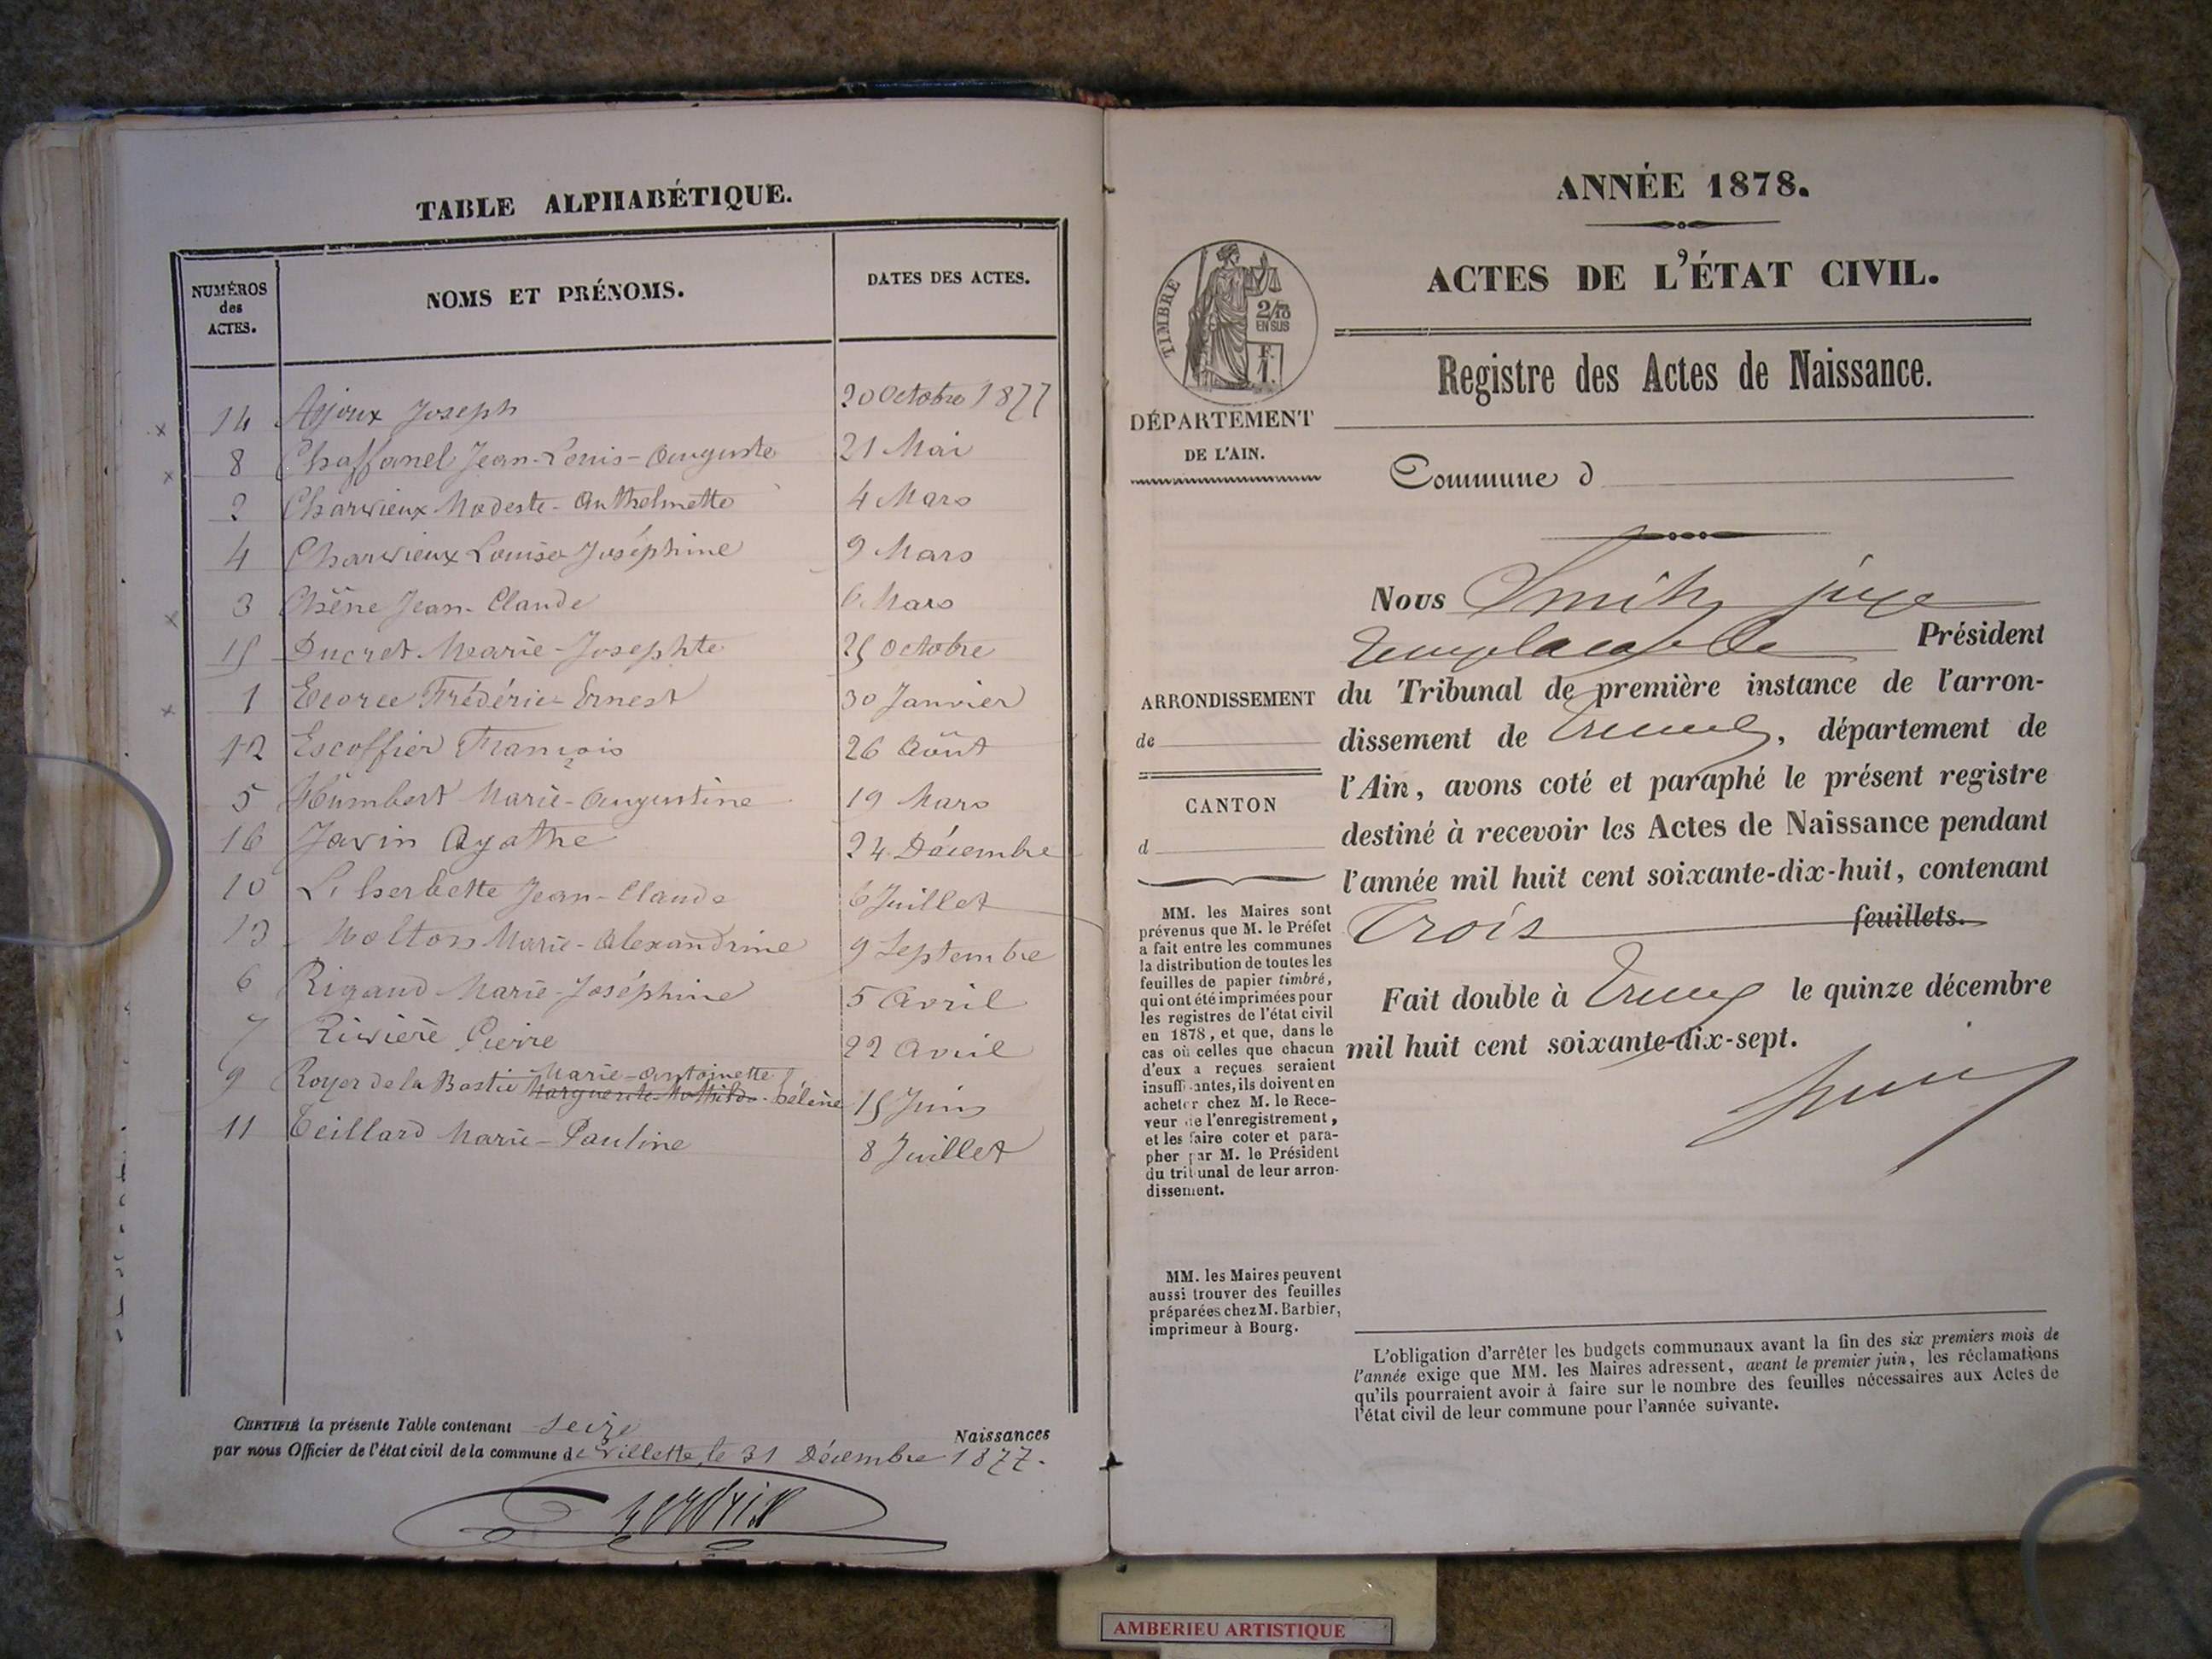 TABLE ALPHABÉTIQUE.
NUMÉROS des ACTES.
NOMS ET PRÉNOMS.
DATES DES ACTES.
14 Ajoux Joseph 20 Octobre 1877
8 Chaffanel Jean-Louis-Auguste 21 Mai
2 Charvieux Modeste-Anthelmette 4 Mars
4 Charvieux Louise Joséphine 9 Mars
3 Chêne Jean-Claude 6 Mars
15 Ducret Marie-Josephte 25 Octobre
1 Ecorce Frédéric Ernest 30 Janvier
12 Escoffier François 26 Août
5 Humbert Marie-Augustine 19 Mars
16 Javin Agathe 24 Décembre
10 Lherbette Jean-Claude 6 Juillet
13 Molton Marie-Alexandrine 9 Septembre
6 Rigaud Marie-Joséphine 5 Avril
7 Rivière Pierre 22 Avril
Marie-Antoinette
9 Royer de la Bastie Marguerite Mathilde-hélène 15 Juin
11 Teillard Marie-Pauline 8 Juillet
CERTIFIÉ la présente Table contenant seize Naissances
par nous Officier de l'état civil de la commune de Villette, le 31 Décembre 1877.
ANNÉE 1878.
ACTES DE L'ÉTAT CIVIL.
TIMBRE
2/10
EN SUS
F.
1.
Registre des Actes de Naissance.
DÉPARTEMENT
DE L'AIN.
Commune d
Nous Smith juge
Président
ARRONDISSEMENT
de
CANTON
d
du Tribunal de première instance de l'arron-
dissement de Trévoux, département de
l'Ain, avons coté et paraphé le présent registre
destiné à recevoir les Actes de Naissance pendant
l'année mil huit cent soixante-dix-huit, contenant
Trois feuillets.
Fait double à Trévoux le quinze décembre
mil huit cent soixante-dix-sept.
MM. les Maires sont
prévenus que M. le Préfet
a fait entre les communes
la distribution de toutes les
feuilles de papier timbré,
qui ont été imprimées pour
les registres de l'état civil
en 1878, et que, dans le
cas où celles que chacun
d'eux a reçues seraient
insuffisantes, ils doivent en
acheter chez M. le Rece-
veur de l'enregistrement,
et les faire coter et para-
pher par M. le Président
du tribunal de leur arron-
dissement.
MM. les Maires peuvent
aussi trouver des feuilles
préparées chez M. Barbier,
imprimeur à Bourg.
L'obligation d'arrêter les budgets communaux avant la fin des six premiers mois de
l'année exige que MM. les Maires adressent, avant le premier juin, les réclamations
qu'ils pourraient avoir à faire sur le nombre des feuilles nécessaires aux Actes de
l'état civil de leur commune pour l'année suivante.
AMBERIEU ARTISTIQUE